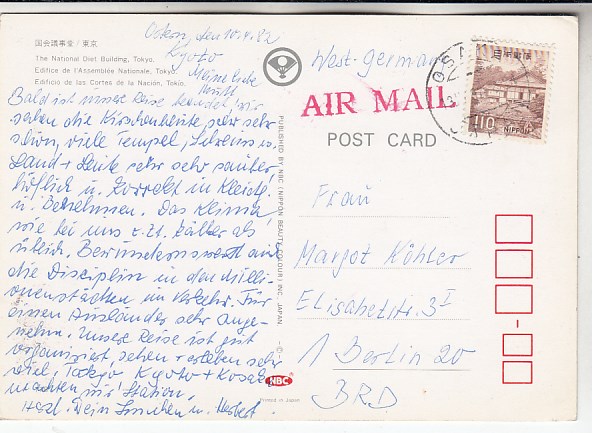 国会議事堂/東京
The National Diet Building, Tokyo.
Edifice de l'Assemblée Nationale, Tokyo.
Edificio de las Cortes de la Nación, Tokio.
den 10.4.82
Kyoto
Meine liebe
Bald ist unsere Reise beendet! wir
sahen die Kirschenblüte sehr sehr
schön, viele Tempel, Schreine u.
Land + Leute sehr sehr sauber
höflich u. korrekt in Kleid.
u. Benehmen. Das Klima
wie bei uns z.Zt. kälter als
üblich. Bewundernswert auch
die Disziplin in den Milli-
onenstädten im Verkehr. Für
einen Ausländer sehr ange-
nehm. Unsere Reise ist gut
organisiert, sehen + erleben sehr
viel, Tokyo Kyoto + Osaka
machten wir Station.
Herzl. Dein u. Herbert
PUBLISHED BY NBC (NIPPON BEAUTY COLOUR INC.) JAPAN
NBC
Printed in Japan
West-Germany
AIR MAIL
POST CARD
日本郵便
110
NIPPON
OSAKA
Frau
Margot Köhler
Elisabetstr. 3 I
1 Berlin 20
BRD